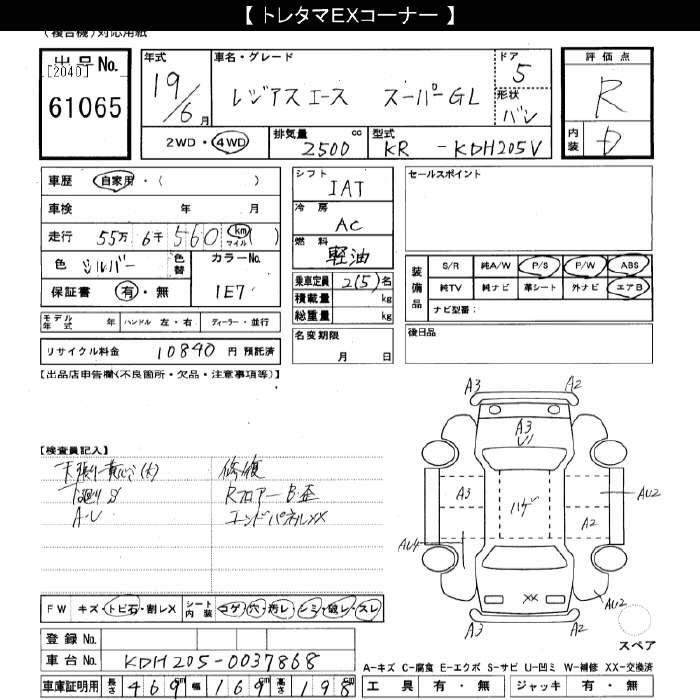 【 トレタマEXコーナー 】
(複合機)対応用紙
出品No.
[2040]
61065
年式
19/6月
車名・グレード
レジアスエース スーパーGL
ドア
5
形状
バン
評価点
R
内装
D
2WD・4WD
排気量 cc
2500
型式
KR - KDH205V
車歴 自家用・( )
車検 年 月
走行 55万 6千 560 km マイル ( )
色 シルバー 色替
カラーNo.
1E7
保証書 有・無
モデル年式 年 ハンドル 左・右 ディーラー・並行
リサイクル料金 10840 円 預託済
シフト
IAT
冷房
AC
燃料
軽油
乗車定員 2(5)名
積載量 kg
総重量 kg
名変期限
月 日
セールスポイント
装備品
S/R 純A/W P/S P/W ABS
純TV 純ナビ 革シート 外ナビ エアB
ナビ型番:
後日品
【出品店申告欄(不良箇所・欠品・注意事項等)】
【検査員記入】
修復
RフロアーB歪
A・U
エンドパネルXX
A3 A2
A3
U1
A3
ハゲ
AU2
A2
AU4
XX
AU2
A3 A2
スペア
FW キズ・トビ石・割レX シート内装 コゲ・穴・汚レ・シミ・破レ・スレ
登録No.
車台No. KDH205-0037868
車庫証明用 長さ 469cm 幅 169cm 高さ 198cm
A-キズ C-腐食 E-エクボ S-サビ U-凹ミ W-補修 XX-交換済
工具 有・無 ジャッキ 有・無